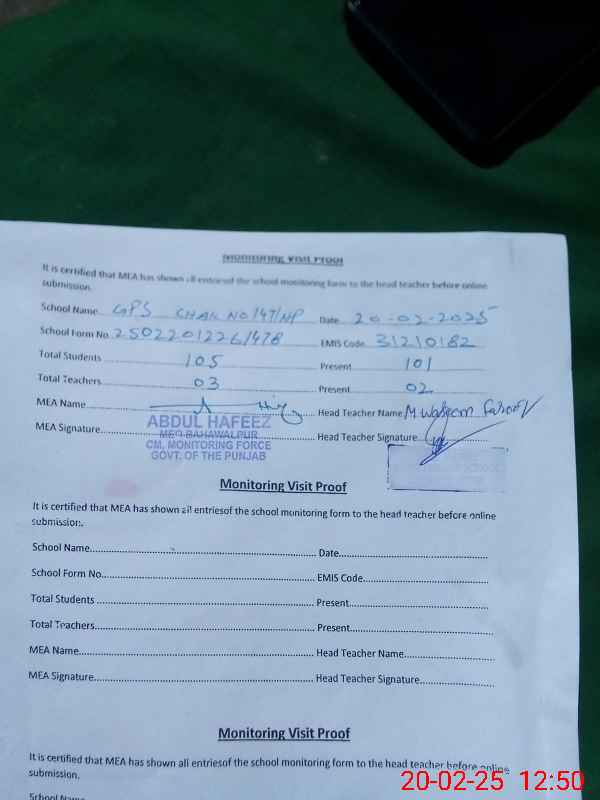 Monitoring Visit Proof
It is certified that MEA has shown all entriesof the school monitoring form to the head teacher before online
submission.
School Name GPS CHAK NO 147/NP Date 20-02-2025
School Form No. 25022012261478 EMIS Code 31210182
Total Students 105 Present 101
Total Teachers 03 Present 02
MEA Name Head Teacher Name M Waseem
ABDUL HAFEEZ
MEA Signature Head Teacher Signature
MEO BAHAWALPUR
CM, MONITORING FORCE
GOVT. OF THE PUNJAB
Monitoring Visit Proof
It is certified that MEA has shown all entriesof the school monitoring form to the head teacher before online
submission.
School Name Date
School Form No. EMIS Code
Total Students Present
Total Teachers Present
MEA Name Head Teacher Name
MEA Signature Head Teacher Signature
Monitoring Visit Proof
It is certified that MEA has shown all entriesof the school monitoring form to the head teacher before online
submission.
School Name
20-02-25 12:50